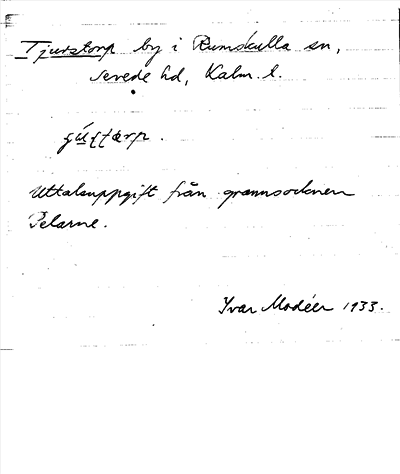 Tjurstorp by i Rumskulla sn,
Sevede hd, Kalm. l.
Uttalsuppgift från grannsocknen
Pelarne.
Ivar Modéer 1933.